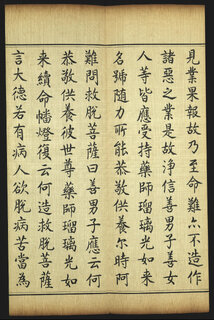 見業果報故乃至命難亦不造作
諸惡之業是故淨信善男子善女
人等皆應受持藥師瑠璃光如来
名號随力所能恭敬供養尒時阿
難問救脫菩薩曰善男子應云何
恭敬供養彼世尊藥師瑠璃光如
来續命幡燈復云何造救脫菩薩
言大德若有病人欲脫病苦當為